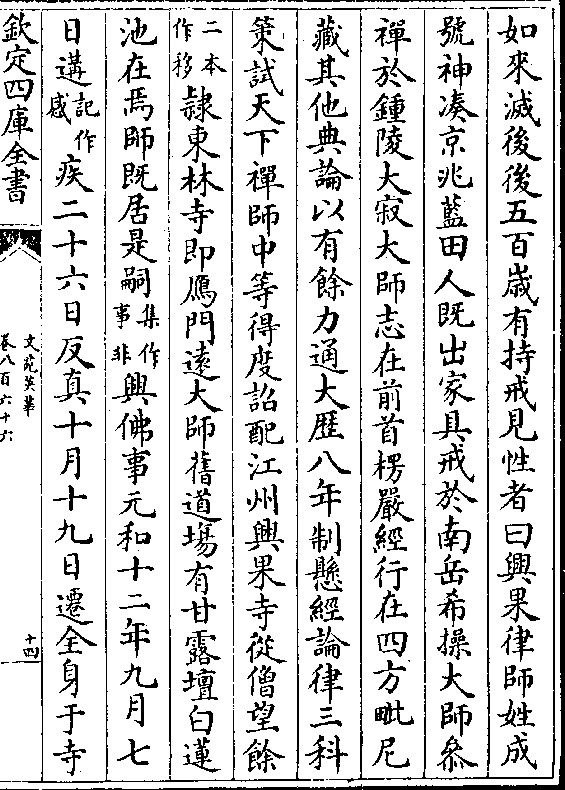 如來滅後後五百嵗有持戒見性者曰興果律師姓成
號神湊京兆藍田人既出家具戒於南岳希操大師叅
禪於鍾陵大寂大師志在前首楞嚴經行在四方毗尼
藏其他典論以有餘力通大歴八年制懸經論律三科
策試天下禪師中等得度詔配江州興果寺從僧望餘
二本作移隷東林寺即鴈門遠大師舊道塲有甘露壇白蓮
池在焉師既居是嗣集作事非興佛事元和十二年九月七
日遘記作感疾二十六日反真十月十九日遷全身于寺
欽定四庫全書
文苑英華
卷八百六十六
十四